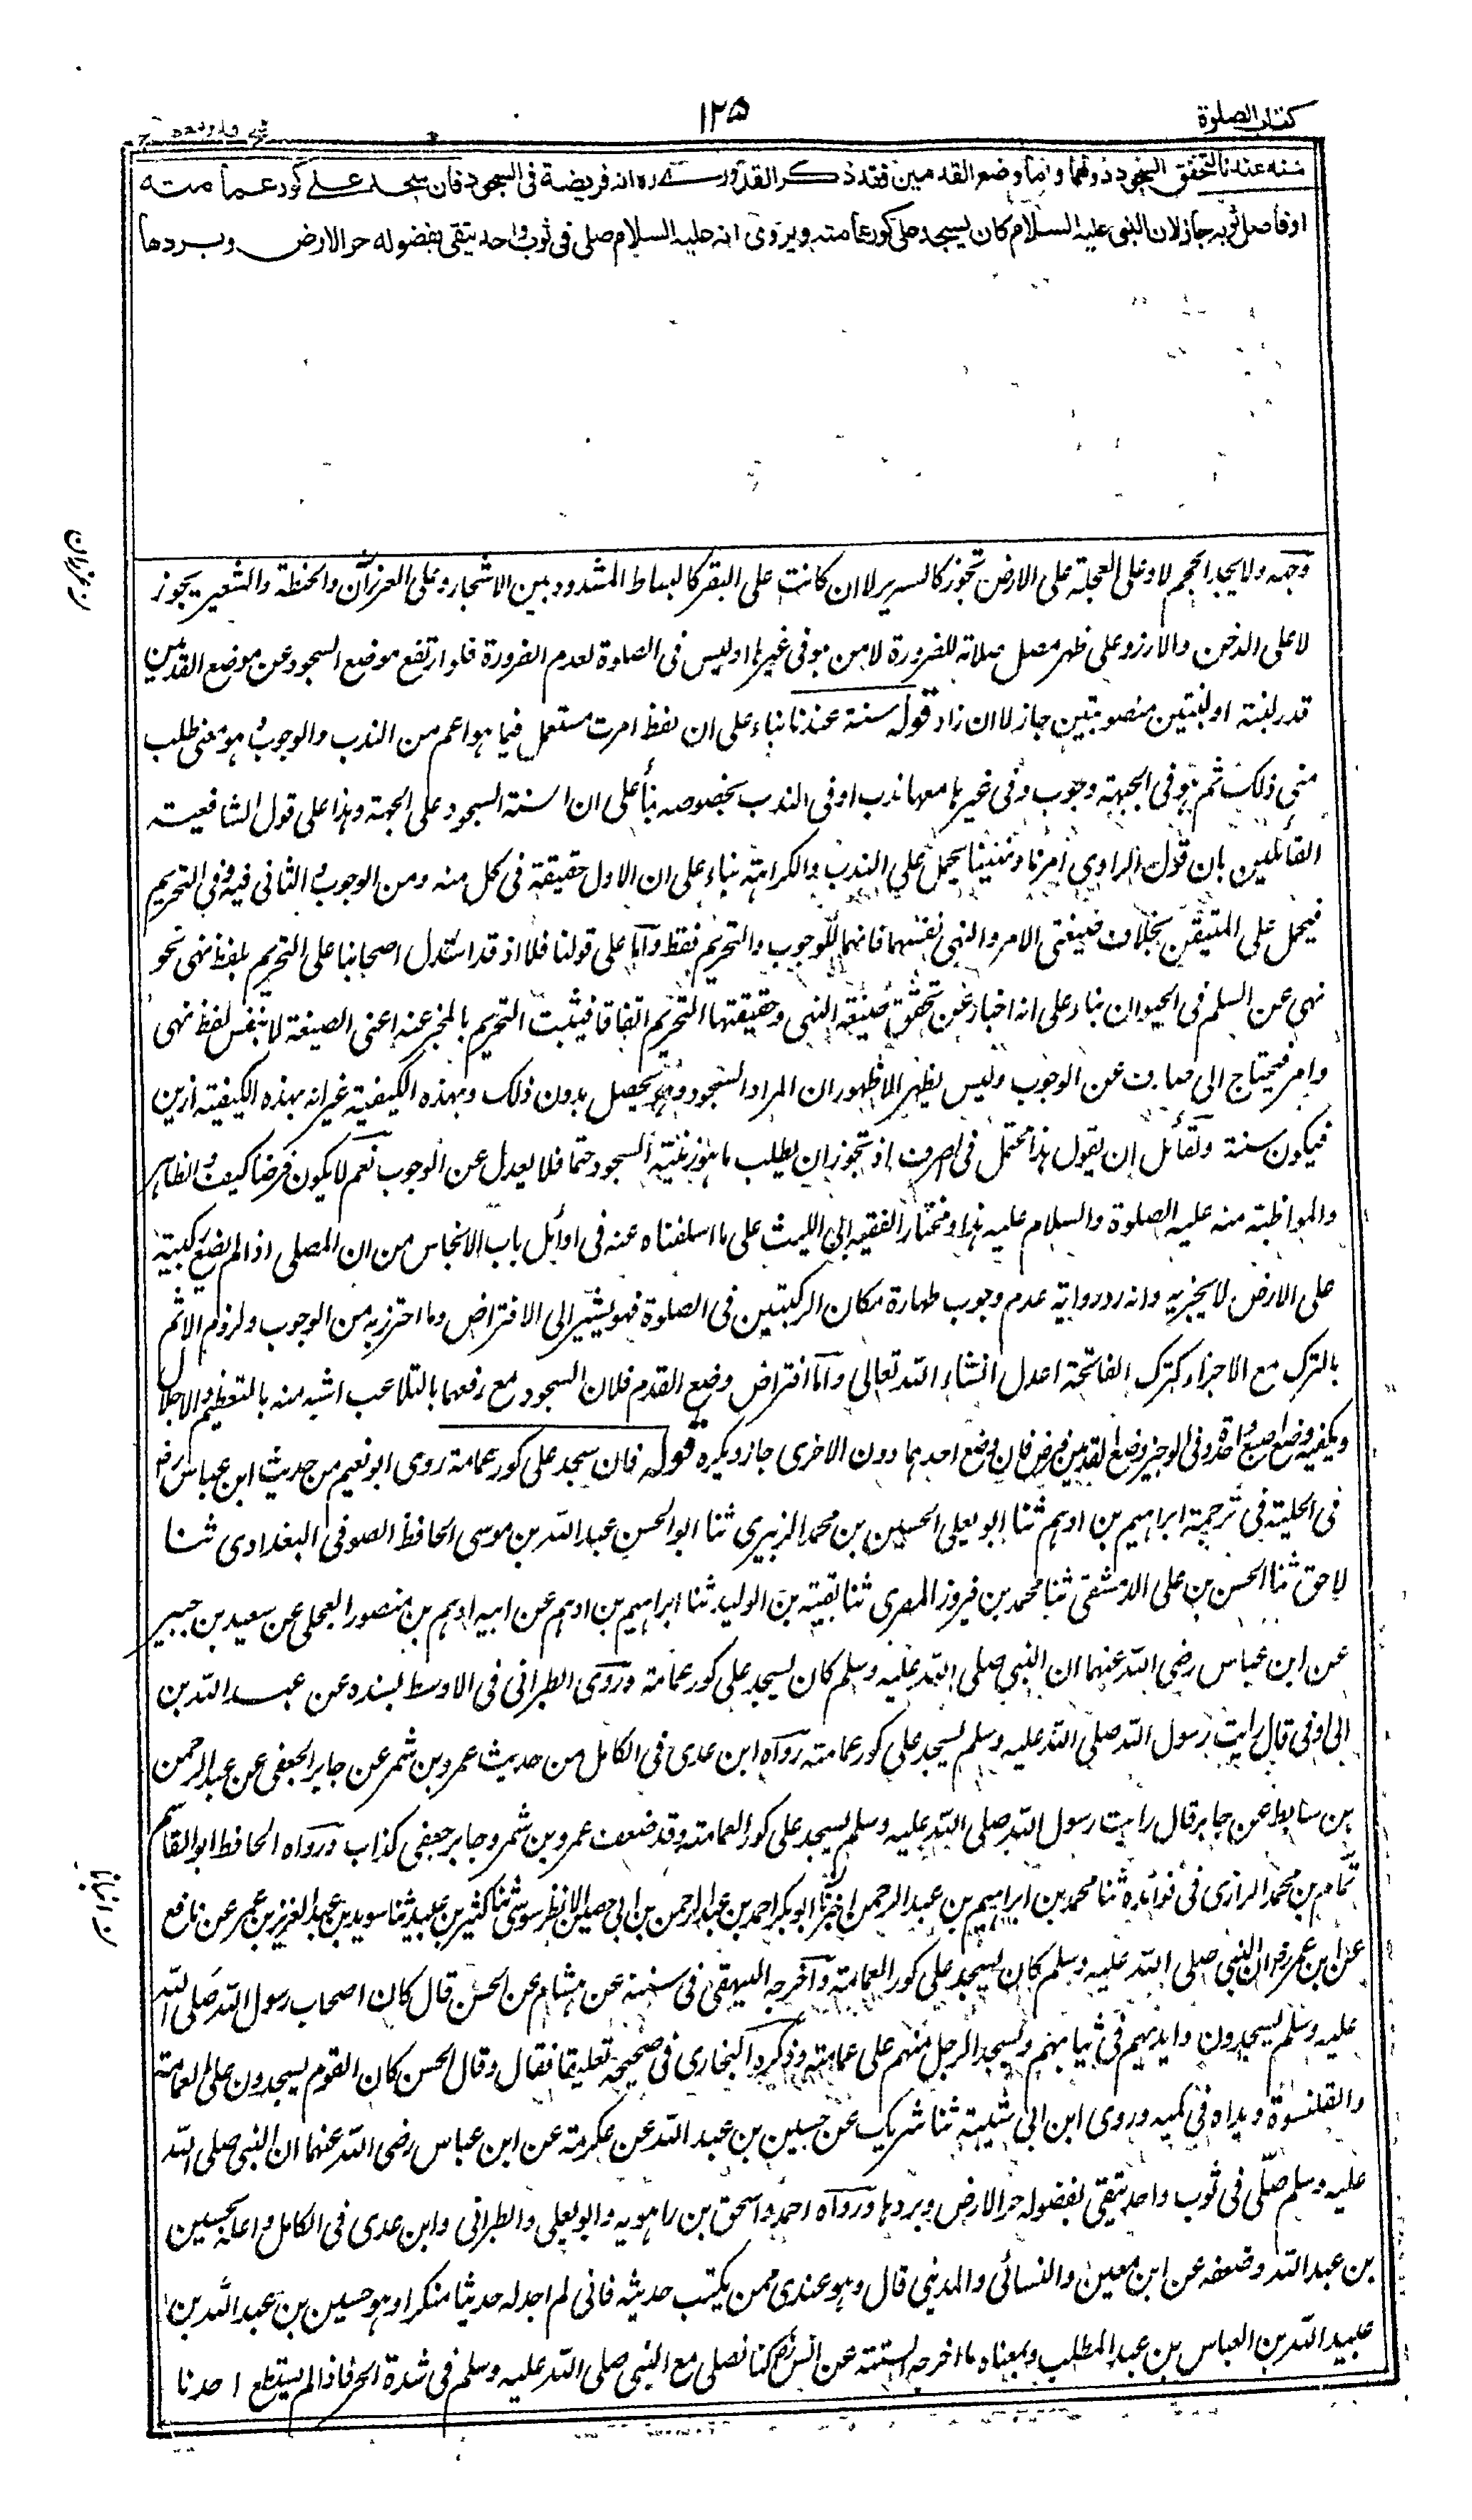 كتاب الصلوة
١٢٥
سنة عندنا لتحقق السجود دونهما واما وضع القدمين فقد ذكر القدوري ره انه فريضة في السجود فان سجد على كور عمامته
او فاضل ثوبه جاز لان النبي عليه السلام كان يسجد على كور عمامته ويروى انه عليه السلام صلى في ثوب واحد يتقى بفضوله حر الارض وبردها
وجهه ولا يجد الحجم لا وعلى العجلة على الارض تجوز كالسرير لا ان كانت على البقر كالبساط المشدود بين الاشجار وعلى العرزال والحنطة والشعير يجوز
لا على الدخن والارز وعلى ظهر مصل صلاته للضرورة لا من هو في غيرها او ليس في الصلوة لعدم الضرورة فلو ارتفع موضع السجود عن موضع القدمين
قدر لبنة او لبنتين منصوبتين جاز لا ان زاد قوله سنة عندنا بناء على ان لفظ امرت مستعمل فيما هو اعم من الندب والوجوب وهو معنى طلب
منى ذلك ثم هو في الجبهة وجوب وفي غيرها معها ندب او في الندب بخصوصه بناء على ان السنة السجود على الجبهة وهذا على قول الشافعية
القائلين بان قول الراوي امرنا ونهينا يحمل على الندب والكراهة بناء على ان الاول حقيقة في كل منه ومن الوجوب والثاني فيه وفي التحريم
فيحمل على المتيقن بخلاف صيغتي الامر والنهي نفسهما فانهما للوجوب والتحريم فقط واما على قولنا فلا اذ قد استدل اصحابنا على التحريم بلفظ نهى نحو
نهى عن السلم في الحيوان بناء على انه اخبار عن تحقق صيغة النهي وحقيقتها التحريم اتفاقا فيثبت التحريم بالمخبر عنه اعنى الصيغة لا بنفس لفظ نهى
وامر فيحتاج الى صارف عن الوجوب وليس يظهر الا ظهور ان المراد السجود وهو يحصل بدون ذلك وبهذه الكيفية غير انه بهذه الكيفية ازين
فيكون سنة ولقائل ان يقول هذا محتمل في الصرف اذ تجوز ان يطلب ما هو زينة السجود حتما فلا يعدل عن الوجوب نعم لا يكون فرضا كيف والظاهر
والمواظبة منه عليه الصلوة والسلام عليه هذا ومختار الفقيه ابي الليث على ما اسلفناه عنه في اوائل باب الانجاس من ان المصلي اذا لم يضع ركبتيه
على الارض لا يجزيه وانه رد رواية عدم وجوب طهارة مكان الركبتين في الصلوة فهو يشير الى الافتراض وما احترز به من الوجوب ولزوم الاثم
بالترك مع الاجزاء كترك الفاتحة اعدل انشاء الله تعالى واما افتراض وضع القدم فلان السجود مع رفعهما بالتلاعب اشبه منه بالتعظيم والاجلال
ويكفيه وضع اصبع واحدة وفي الوجيز وضع القدمين فرض فان وضع احدهما دون الاخرى جاز ويكره قوله فان سجد على كور عمامة روى ابو نعيم من حديث ابن عباس رض
في الحلية في ترجمة ابراهيم بن ادهم ثنا ابو يعلى الحسين بن محمد الزبيري ثنا ابو الحسن عبد الله بن موسى الحافظ الصوفي البغدادي ثنا
لاحق ثنا الحسن بن على الدمشقي ثنا محمد بن فيروز المصري ثنا بقية بن الوليد ثنا ابراهيم بن ادهم عن ابيه ادهم بن منصور العجلي عن سعيد بن جبير
عن ابن عباس رضي الله عنهما ان النبي صلى الله عليه وسلم كان يسجد على كور عمامة وروى الطبراني في الاوسط بسنده عن عبد الله بن
ابي اوفى قال رايت رسول الله صلى الله عليه وسلم يسجد على كور عمامته رواه ابن عدي في الكامل من حديث عمرو بن شمر عن جابر الجعفي عن عبد الرحمن
بن سابط عن جابر قال رايت رسول الله صلى الله عليه وسلم يسجد على كور العمامة وقد ضعف عمرو بن شمر وجابر جعفي كذاب ورواه الحافظ ابو القاسم
تمام بن محمد الرازي في فوائده ثنا محمد بن ابراهيم بن عبد الرحمن اخبرنا ابو بكر احمد بن عبد الرحمن بن ابي حصين الانطرسوسي ثنا كثير بن عبيد ثنا سويد بن عبد العزيز بن عمر عن نافع
عن ابن عمر رض ان النبي صلى الله عليه وسلم كان يسجد على كور العمامة واخرجه البيهقي في سننه عن هشام عن الحسن قال كان اصحاب رسول الله صلى الله
عليه وسلم يسجدون وايديهم في ثيابهم ويسجد الرجل منهم على عمامته وذكره البخاري في صحيحه تعليقا فقال وقال الحسن كان القوم يسجدون على العمامة
والقلنسوة ويداه في كميه وروى ابن ابي شيبة ثنا شريك عن حسين بن عبد الله عن عكرمة عن ابن عباس رضي الله عنهما ان النبي صلى الله
عليه وسلم صلى في ثوب واحد يتقى بفضوله حر الارض وبردها ورواه احمد واسحق بن راهويه وابو يعلى والطبراني وابن عدي في الكامل واعله بحسين
بن عبد الله وضعفه عن ابن معين والنسائي والمديني قال وهو عندي ممن يكتب حديثه فاني لم اجد له حديثا منكرا وهو حسين بن عبد الله بن
عبيد الله بن العباس بن عبد المطلب وبمعناه ما اخرجه الستة عن انس رض كنا نصلى مع النبي صلى الله عليه وسلم في شدة الحر فاذا لم يستطع احدنا